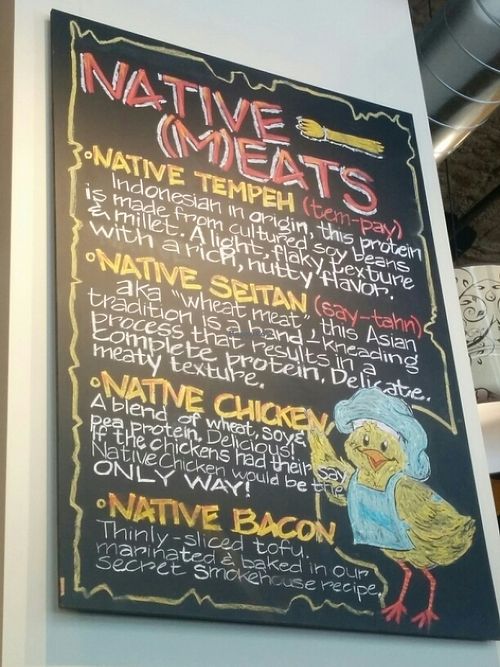 NATIVE
(M)EATS
•NATIVE TEMPEH (tem-pay)
Indonesian in origin, this protein
is made from cultured soy beans
& millet. A light, flaky texture
with a rich, nutty flavor.
•NATIVE SEITAN (say-tahn)
aka "wheat meat", this Asian
tradition is a hand-kneading
process that results in a
complete protein, Delicate.
meaty texture.
•NATIVE CHICKEN
A blend of wheat, soy &
pea protein, Delicious!
If the chickens had their say
Native Chicken would be the
ONLY WAY!
•NATIVE BACON
Thinly-sliced tofu.
marinated & baked in our
secret smokehouse recipe.